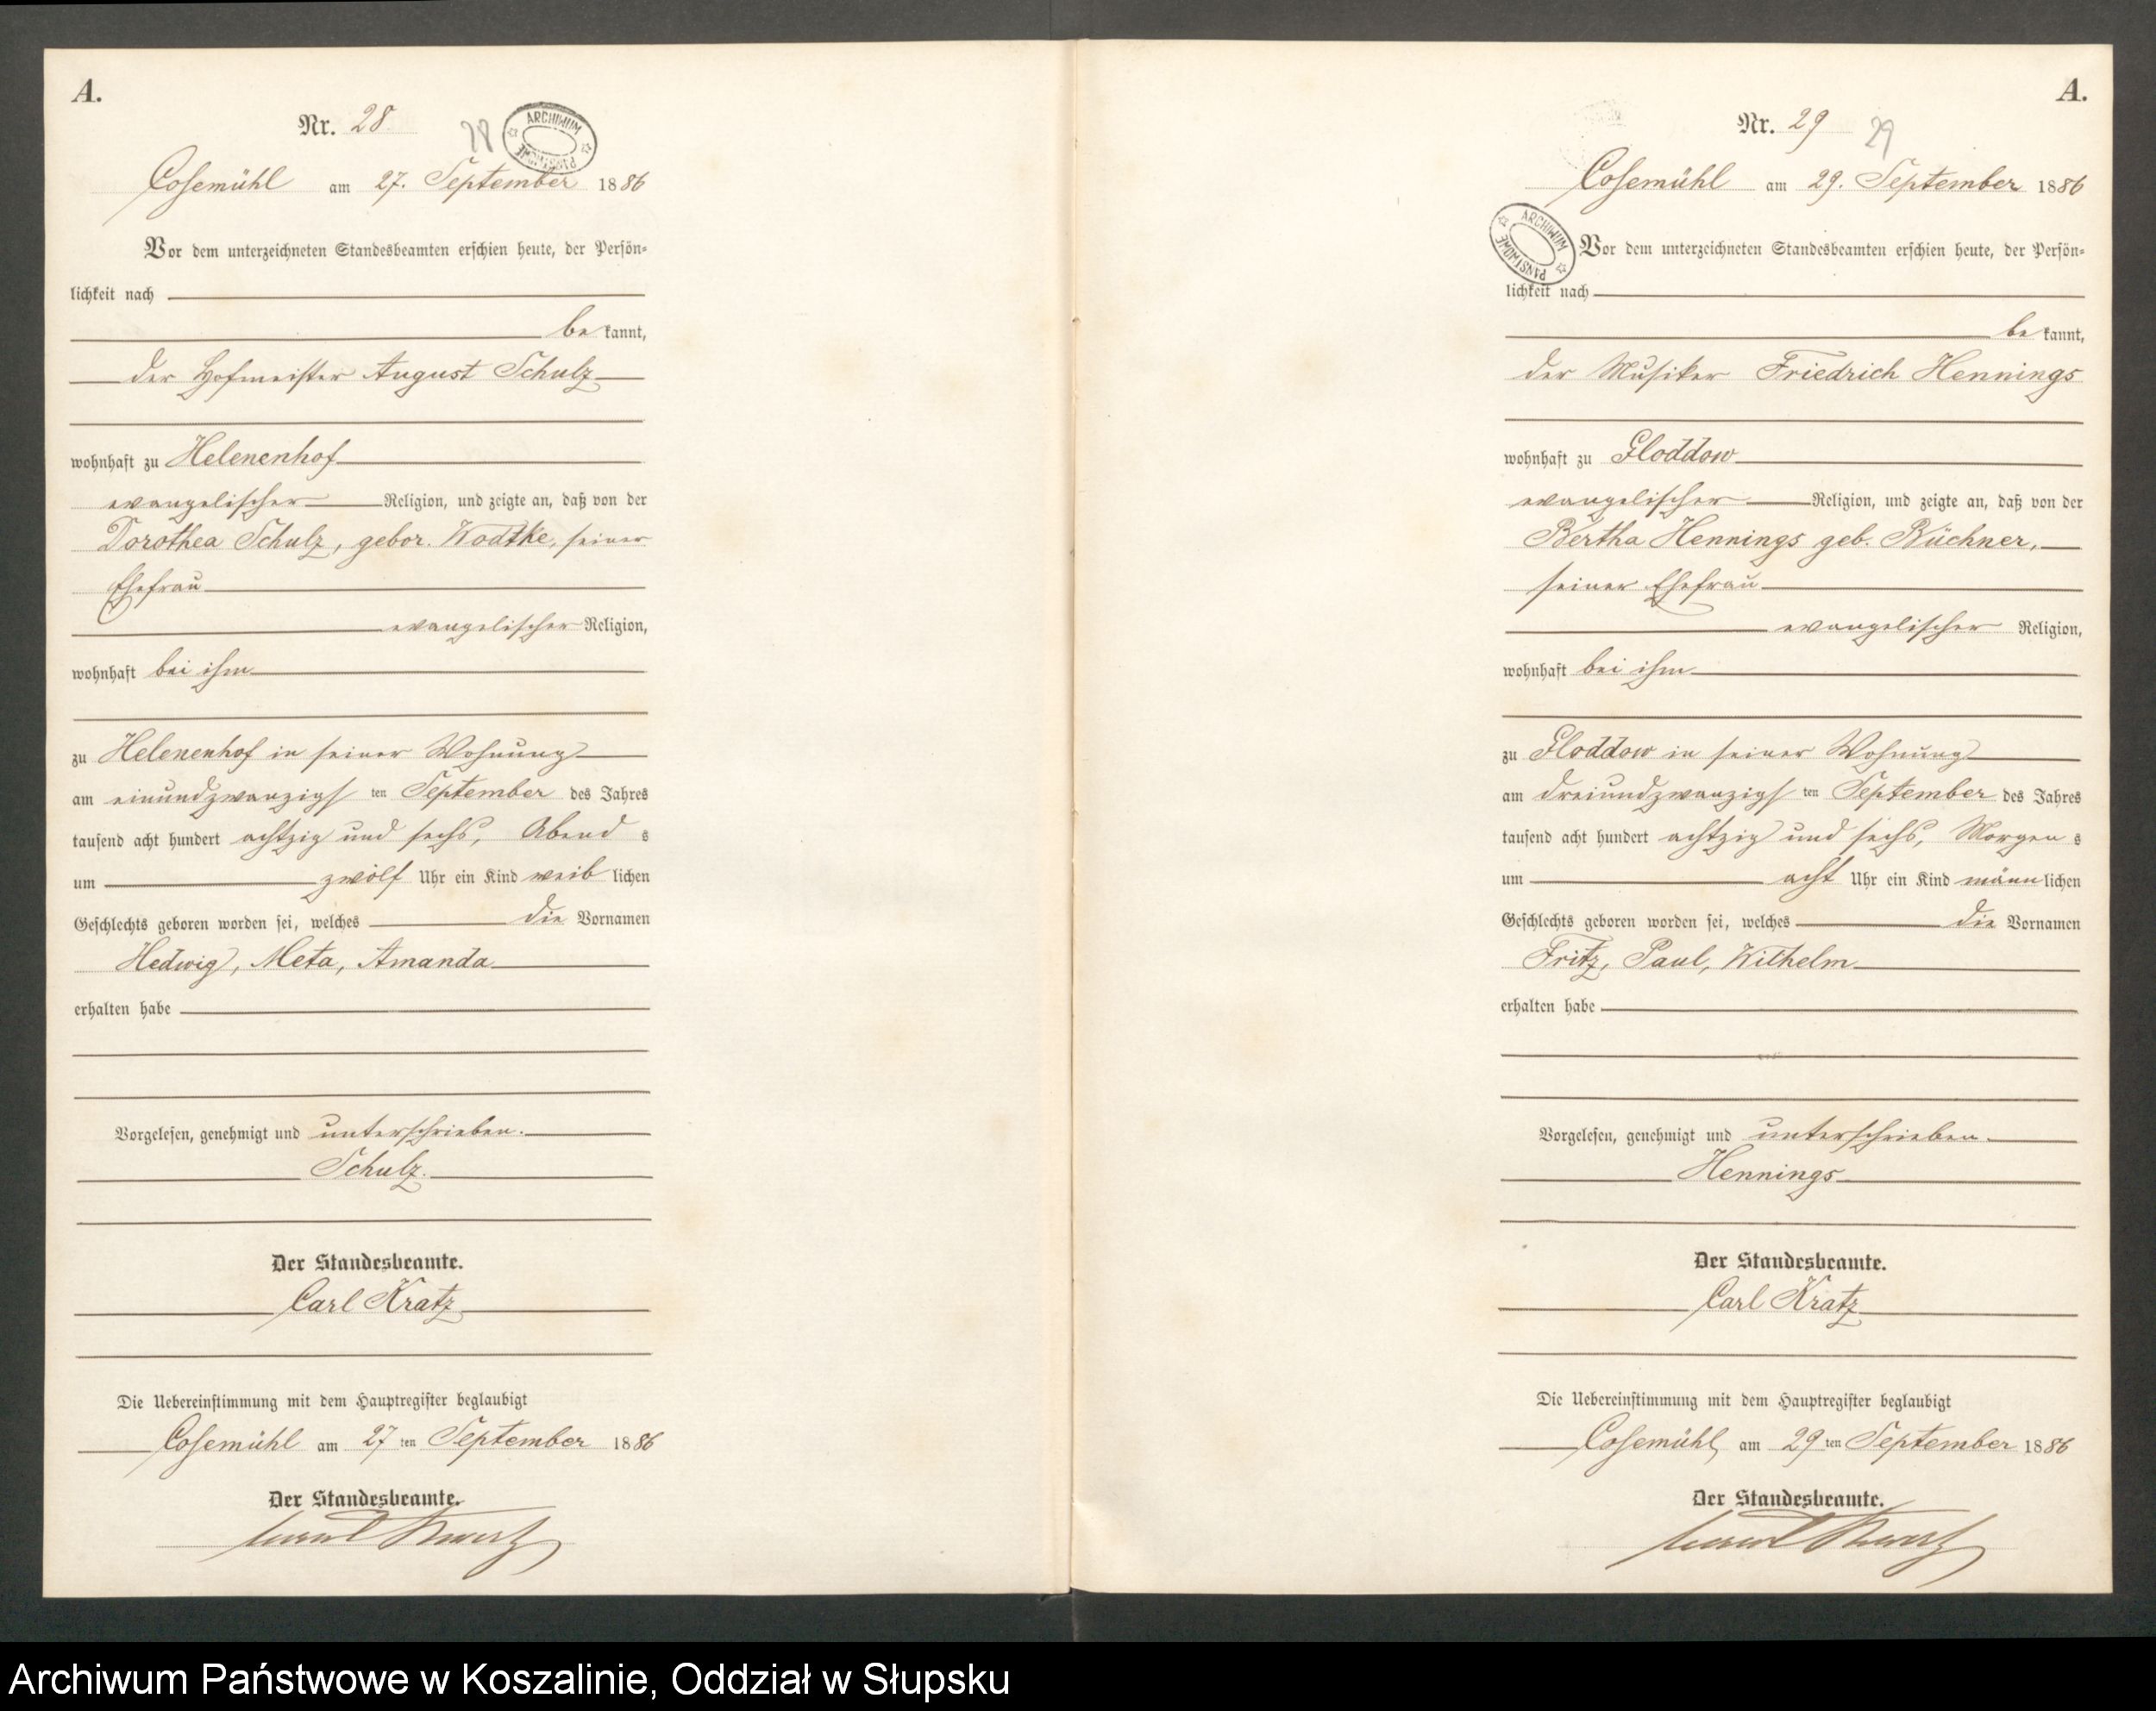 A.
Nr. 28
28
ARCHIWUM PAŃSTWOWE
Cosemühl am 27. September 1886
Vor dem unterzeichneten Standesbeamten erschien heute, der Persön-
lichkeit nach
be kannt,
der Hofmeister August Schulz
wohnhaft zu Helenenhof
evangelischer Religion, und zeigte an, daß von der
Dorothea Schulz, gebor. Wodtke, seiner
Ehefrau
evangelischer Religion,
wohnhaft bei ihm
zu Helenenhof in seiner Wohnung
am einundzwanzigs ten September des Jahres
tausend acht hundert achtzig und sechs, Abend s
um zwölf Uhr ein Kind weib lichen
Geschlechts geboren worden sei, welches die Vornamen
Hedwig, Meta, Amanda
erhalten habe
Vorgelesen, genehmigt und unterschrieben.
Schulz.
Der Standesbeamte.
Carl Kratz
Die Uebereinstimmung mit dem Hauptregister beglaubigt
Cosemühl am 27 ten September 1886
Der Standesbeamte.
Carl Kratz
A.
Nr. 29
29
Cosemühl am 29. September 1886
ARCHIWUM PAŃSTWOWE
Vor dem unterzeichneten Standesbeamten erschien heute, der Persön-
lichkeit nach
be kannt,
der Musiker Friedrich Hennings
wohnhaft zu Gloddow
evangelischer Religion, und zeigte an, daß von der
Bertha Hennings geb. Büchner,
seiner Ehefrau
evangelischer Religion,
wohnhaft bei ihm
zu Gloddow in seiner Wohnung
am dreiundzwanzigs ten September des Jahres
tausend acht hundert achtzig und sechs, Morgen s
um acht Uhr ein Kind männ lichen
Geschlechts geboren worden sei, welches die Vornamen
Fritz, Paul, Wilhelm
erhalten habe
Vorgelesen, genehmigt und unterschrieben.
Hennings
Der Standesbeamte.
Carl Kratz
Die Uebereinstimmung mit dem Hauptregister beglaubigt
Cosemühl, am 29 ten September 1886
Der Standesbeamte.
Carl Kratz
Archiwum Państwowe w Koszalinie, Oddział w Słupsku